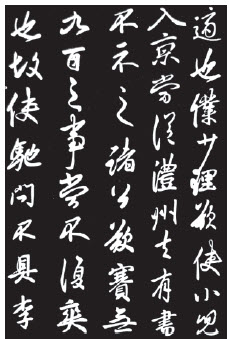 適也仆少理欲使小兒
入京嘗從澧州去有書
不示之諸公欲賽無
九百之事嘗不復奕
也故使馳問不具李